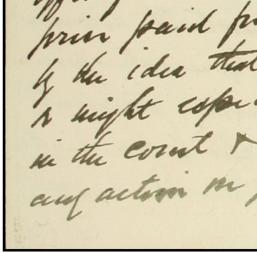 price paid fr
by the idea that
& might espe
in the court &
any action on